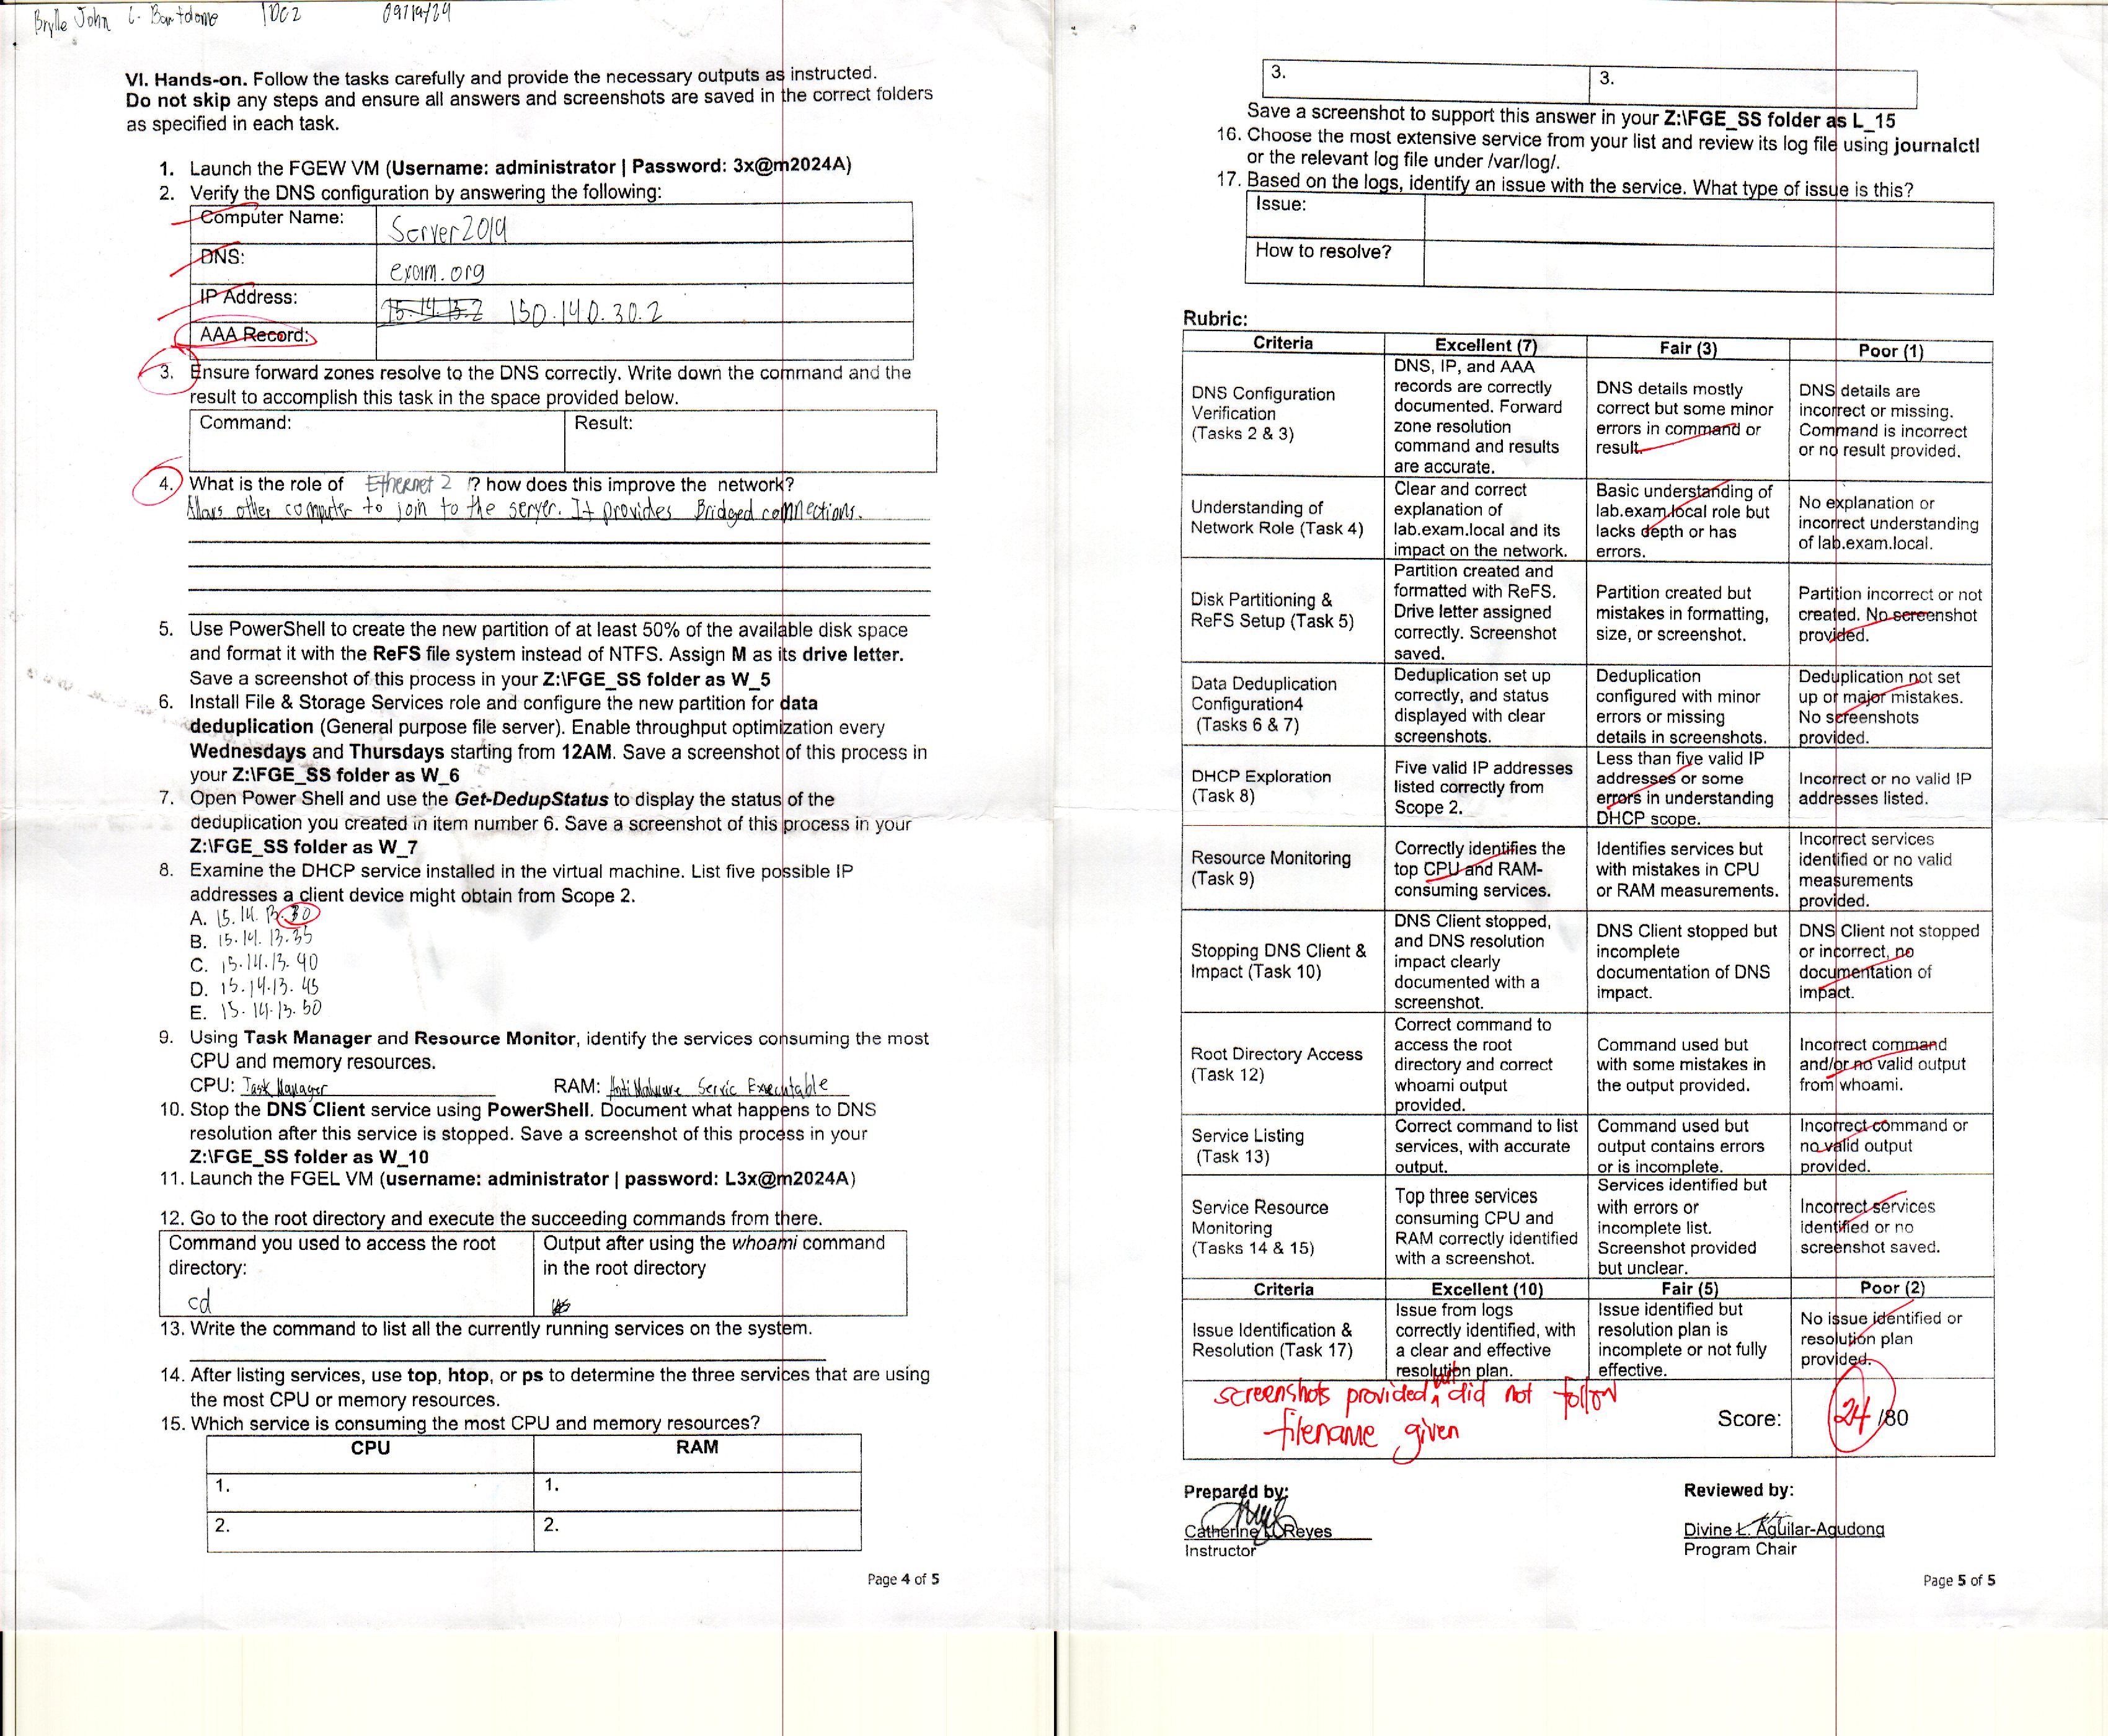 Brylle John L. Bartolome 1DC2 09/19/24
VI. Hands-on. Follow the tasks carefully and provide the necessary outputs as instructed.
Do not skip any steps and ensure all answers and screenshots are saved in the correct folders
as specified in each task.
1. Launch the FGEW VM (Username: administrator | Password: 3x@m2024A)
2. Verify the DNS configuration by answering the following:
Computer Name: Server2019
DNS: exam.org
IP Address: 150.140.30.2
AAA Record:
3. Ensure forward zones resolve to the DNS correctly. Write down the command and the
result to accomplish this task in the space provided below.
Command: Result:
4. What is the role of Ethernet 2 ? how does this improve the network?
Allows other computer to join to the server. It provides Bridged connections.
5. Use PowerShell to create the new partition of at least 50% of the available disk space
and format it with the ReFS file system instead of NTFS. Assign M as its drive letter.
Save a screenshot of this process in your Z:\FGE_SS folder as W_5
6. Install File & Storage Services role and configure the new partition for data
deduplication (General purpose file server). Enable throughput optimization every
Wednesdays and Thursdays starting from 12AM. Save a screenshot of this process in
your Z:\FGE_SS folder as W_6
7. Open Power Shell and use the Get-DedupStatus to display the status of the
deduplication you created in item number 6. Save a screenshot of this process in your
Z:\FGE_SS folder as W_7
8. Examine the DHCP service installed in the virtual machine. List five possible IP
addresses a client device might obtain from Scope 2.
A. 15.14.13.30
B. 15.14.13.35
C. 15.14.13.40
D. 15.14.13.45
E. 15.14.13.50
9. Using Task Manager and Resource Monitor, identify the services consuming the most
CPU and memory resources.
CPU: Task Manager RAM: AntiMalware Servic Executable
10. Stop the DNS Client service using PowerShell. Document what happens to DNS
resolution after this service is stopped. Save a screenshot of this process in your
Z:\FGE_SS folder as W_10
11. Launch the FGEL VM (username: administrator | password: L3x@m2024A)
12. Go to the root directory and execute the succeeding commands from there.
Command you used to access the root Output after using the whoami command
directory: in the root directory
cd
13. Write the command to list all the currently running services on the system.
14. After listing services, use top, htop, or ps to determine the three services that are using
the most CPU or memory resources.
15. Which service is consuming the most CPU and memory resources?
CPU RAM
1. 1.
2. 2.
Page 4 of 5
3. 3.
Save a screenshot to support this answer in your Z:\FGE_SS folder as L_15
16. Choose the most extensive service from your list and review its log file using journalctl
or the relevant log file under /var/log/.
17. Based on the logs, identify an issue with the service. What type of issue is this?
Issue:
How to resolve?
Rubric:
Criteria Excellent (7) Fair (3) Poor (1)
DNS Configuration
Verification
(Tasks 2 & 3)
DNS, IP, and AAA
records are correctly
documented. Forward
zone resolution
command and results
are accurate.
DNS details mostly
correct but some minor
errors in command or
result.
DNS details are
incorrect or missing.
Command is incorrect
or no result provided.
Understanding of
Network Role (Task 4)
Clear and correct
explanation of
lab.exam.local and its
impact on the network.
Basic understanding of
lab.exam.local role but
lacks depth or has
errors.
No explanation or
incorrect understanding
of lab.exam.local.
Disk Partitioning &
ReFS Setup (Task 5)
Partition created and
formatted with ReFS.
Drive letter assigned
correctly. Screenshot
saved.
Partition created but
mistakes in formatting,
size, or screenshot.
Partition incorrect or not
created. No screenshot
provided.
Data Deduplication
Configuration4
(Tasks 6 & 7)
Deduplication set up
correctly, and status
displayed with clear
screenshots.
Deduplication
configured with minor
errors or missing
details in screenshots.
Deduplication not set
up or major mistakes.
No screenshots
provided.
DHCP Exploration
(Task 8)
Five valid IP addresses
listed correctly from
Scope 2.
Less than five valid IP
addresses or some
errors in understanding
DHCP scope.
Incorrect or no valid IP
addresses listed.
Resource Monitoring
(Task 9)
Correctly identifies the
top CPU and RAM-
consuming services.
Identifies services but
with mistakes in CPU
or RAM measurements.
Incorrect services
identified or no valid
measurements
provided.
Stopping DNS Client &
Impact (Task 10)
DNS Client stopped,
and DNS resolution
impact clearly
documented with a
screenshot.
DNS Client stopped but
incomplete
documentation of DNS
impact.
DNS Client not stopped
or incorrect, no
documentation of
impact.
Root Directory Access
(Task 12)
Correct command to
access the root
directory and correct
whoami output
provided.
Command used but
with some mistakes in
the output provided.
Incorrect command
and/or no valid output
from whoami.
Service Listing
(Task 13)
Correct command to list
services, with accurate
output.
Command used but
output contains errors
or is incomplete.
Incorrect command or
no valid output
provided.
Service Resource
Monitoring
(Tasks 14 & 15)
Top three services
consuming CPU and
RAM correctly identified
with a screenshot.
Services identified but
with errors or
incomplete list.
Screenshot provided
but unclear.
Incorrect services
identified or no
screenshot saved.
Criteria Excellent (10) Fair (5) Poor (2)
Issue Identification &
Resolution (Task 17)
Issue from logs
correctly identified, with
a clear and effective
resolution plan.
Issue identified but
resolution plan is
incomplete or not fully
effective.
No issue identified or
resolution plan
provided.
screenshots provided, but did not follow
filename given
Score: 24 /80
Prepared by: Reviewed by:
Catherine L. Reyes Divine L. Aguilar-Agudong
Instructor Program Chair
Page 5 of 5